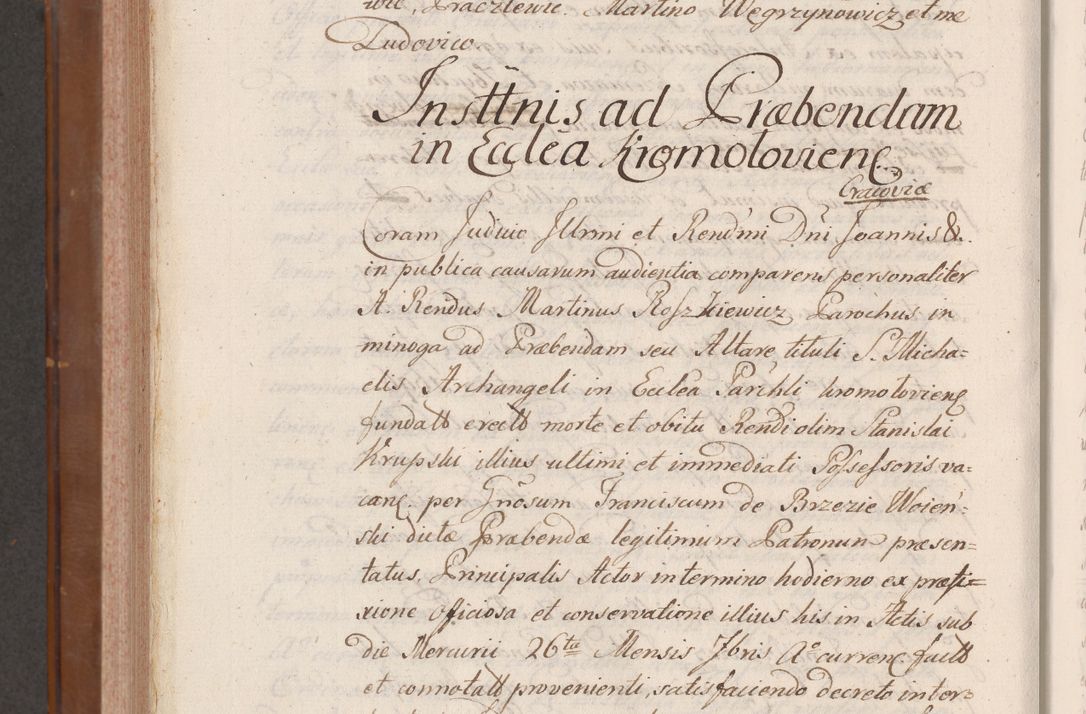 wic, Praczlewic. Martino Węgrzynowicz et me
Ludovico.
Insttnis ad Præbendam
in Ecclēa Kromoloviens.
Cracoviæ
Coram Judicio Illrmi et Rendmi Dni Joannis &.
in publica causarum audientia comparens personaliter
A. Rendus Martinus Roszkiewicz Parochus in
minoga ad Præbendam seu Altare tituli S. Micha=
elis Archangeli in Ecclēa Parchli Kromoloviens
fundatt erectt morte et obitu Rendi olim Stanislai
Krupski illius ultimi et immediati Possessoris va=
canẽ. per Gñosum Franciscum de Brzezie Woień=
ski dictæ Præbendæ legitimum Patronum præsen=
tatus, Principalis Actor in termino hodierno ex præfi=
xione officiosa et conservatione illius his in Actis sub
die Mercurii 26tæ Mensis 7bris Aº currenẽ. factt
et connotatt provenienti, satisfaciendo decreto inter=